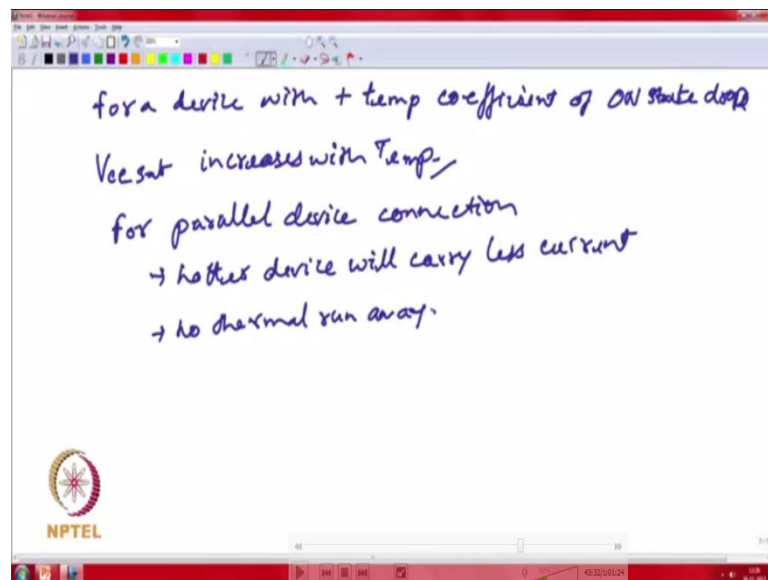 for a device with + temp coefficient of ON state drop
Vce sat increases with Temp.
for parallel device connection
→ hotter device will carry less current
→ no thermal run away.
NPTEL
43:32/1:01:24